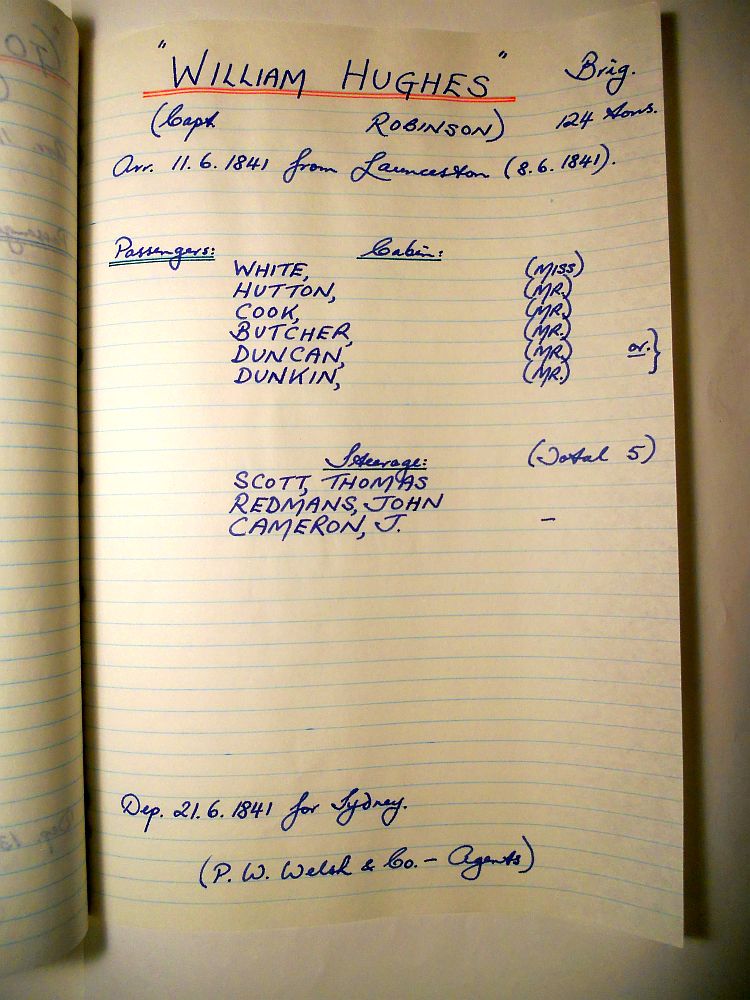 "WILLIAM HUGHES" Brig.
(Capt ROBINSON) 124 tons.
Arr. 11.6.1841 from Launceston (8.6.1841).
Passengers: Cabin:
WHITE, (MISS)
HUTTON, (MR.)
COOK, (MR.)
BUTCHER, (MR.)
DUNCAN, (MR.) or. }
DUNKIN, (MR.)
Steerage: (Total 5)
SCOTT, THOMAS
REDMANS, JOHN
CAMERON, J. –
Dep. 21.6.1841 for Sydney.
(P. W. Welsh & Co. – Agents)